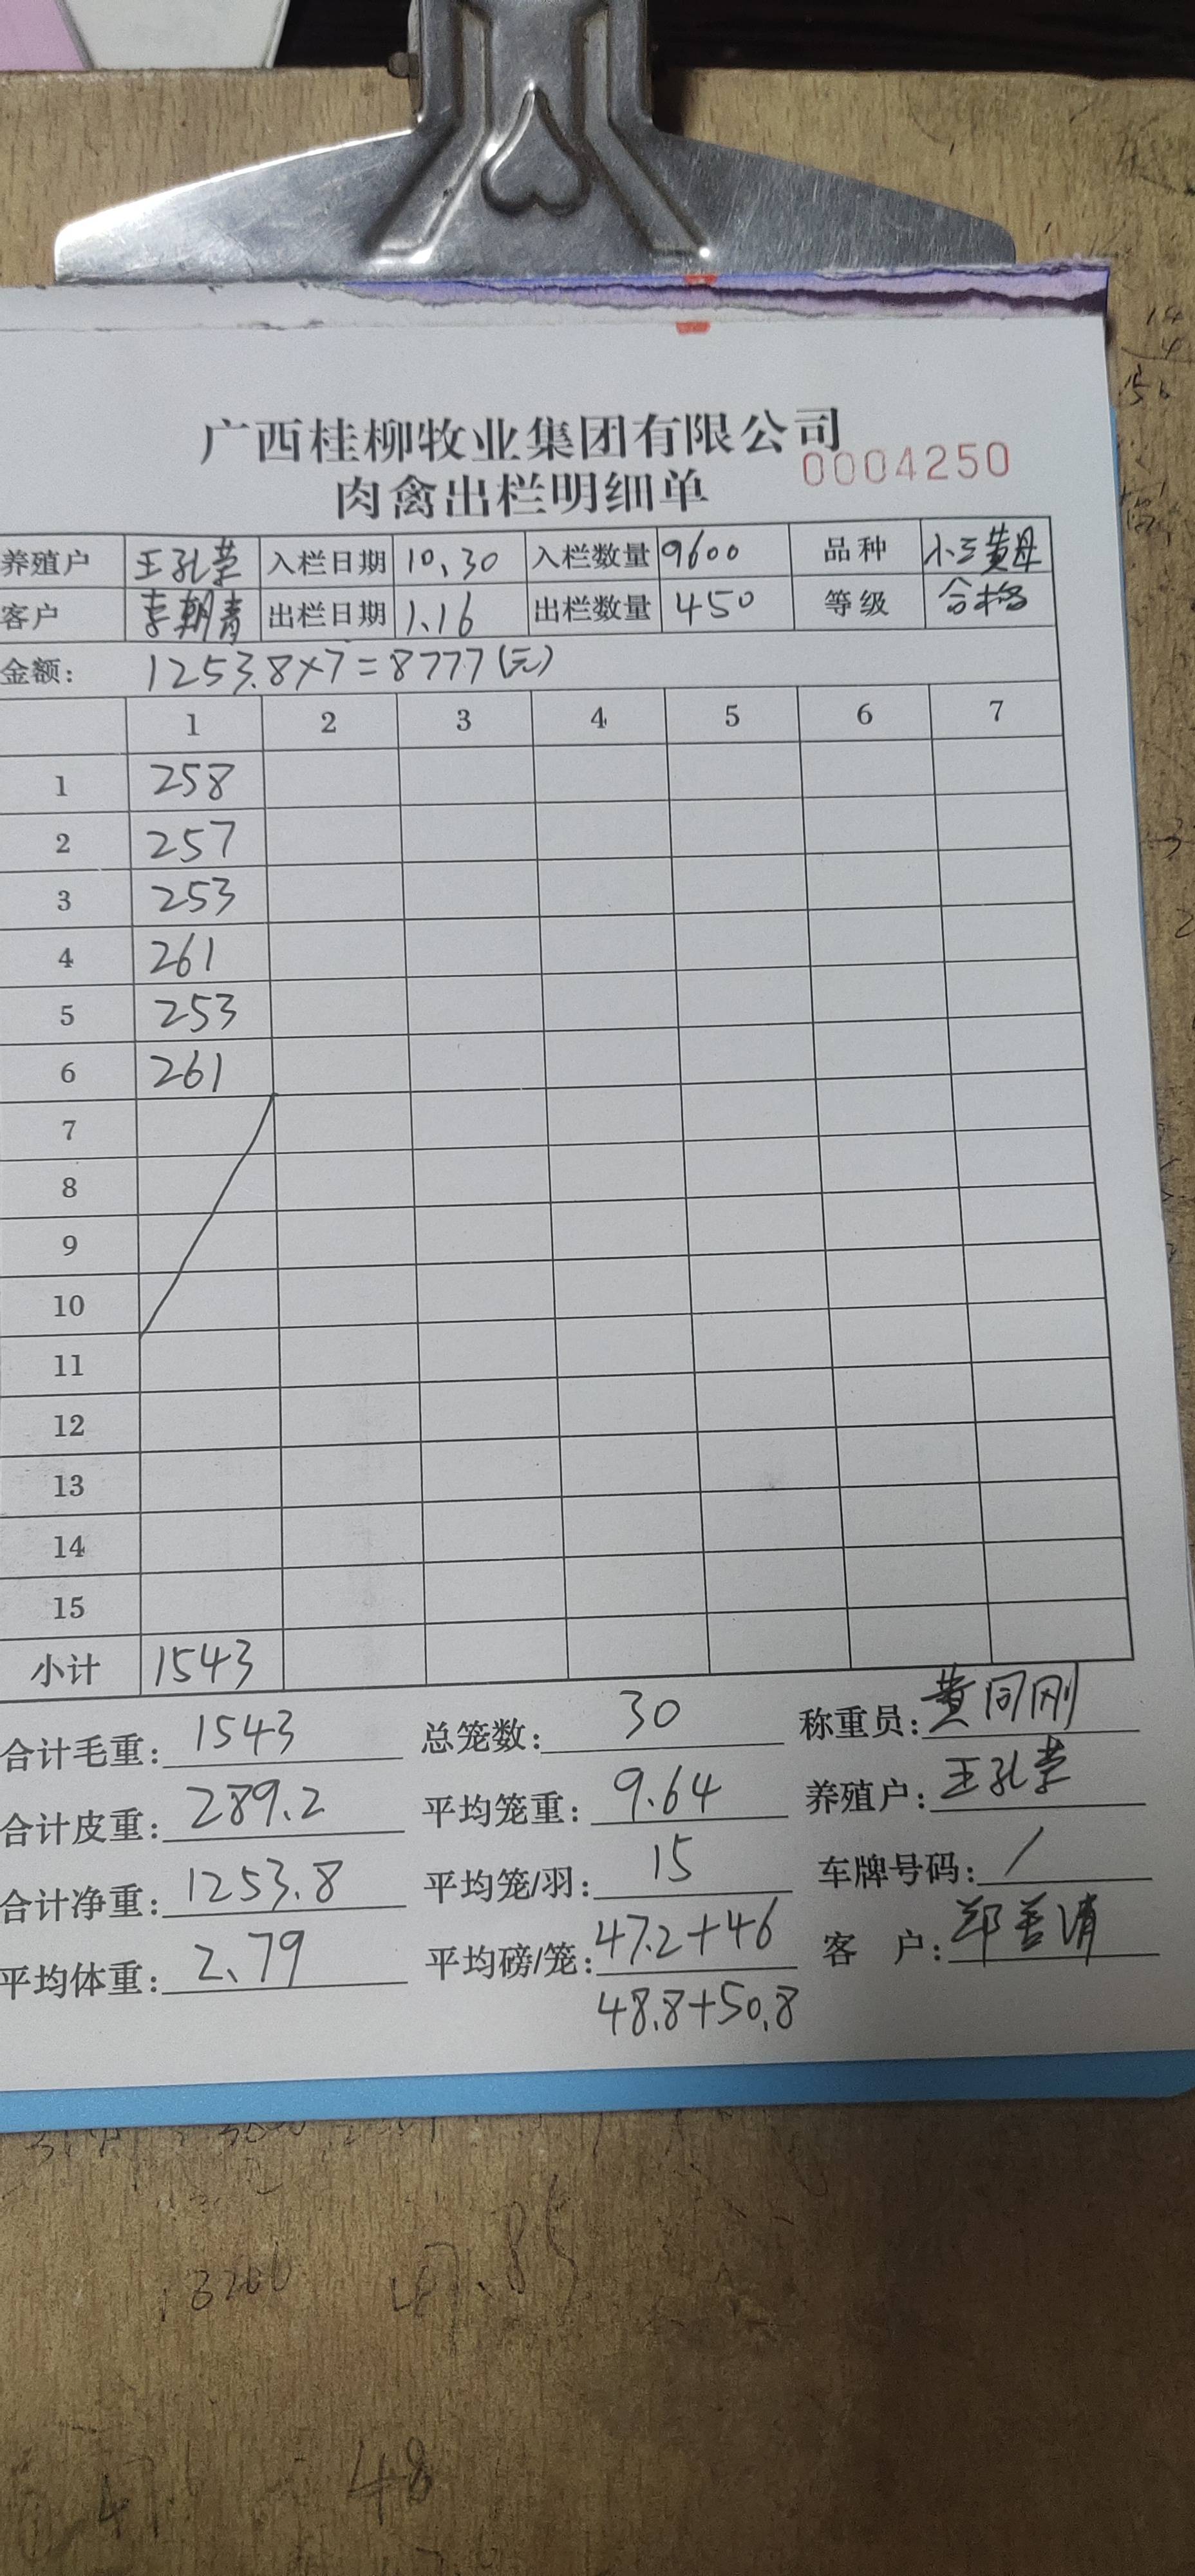 广西桂柳牧业集团有限公司
0004250
肉禽出栏明细单
养殖户 王孔荣 入栏日期 10、30 入栏数量 9600 品种 小三黄母
客户 李朝青 出栏日期 1、16 出栏数量 450 等级 合格
金额: 1253.8×7=8777(元)
1 2 3 4 5 6 7
1 258
2 257
3 253
4 261
5 253
6 261
7
8
9
10
11
12
13
14
15
小计 1543
合计毛重: 1543 总笼数: 30 称重员: 黄同刚
合计皮重: 289.2 平均笼重: 9.64 养殖户: 王孔荣
合计净重: 1253.8 平均笼/羽: 15 车牌号码: /
平均体重: 2、79 平均磅/笼: 47.2+46 客 户:
48.8+50.8
48